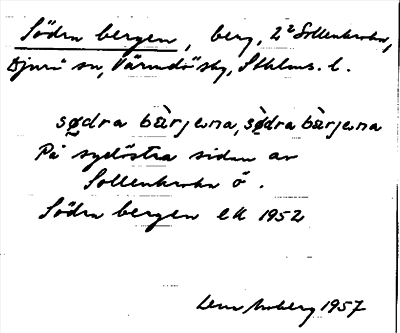 Södra bergen, berg, 2² Sollenkroka,
Djurö sn, Värmdö skg, Sthlms. l.
sødra bàrjɐna, sødra bàrjɐna
På sydöstra sidan av
Sollenkroka ö.
Södra bergen ek 1952
Moberg 1957